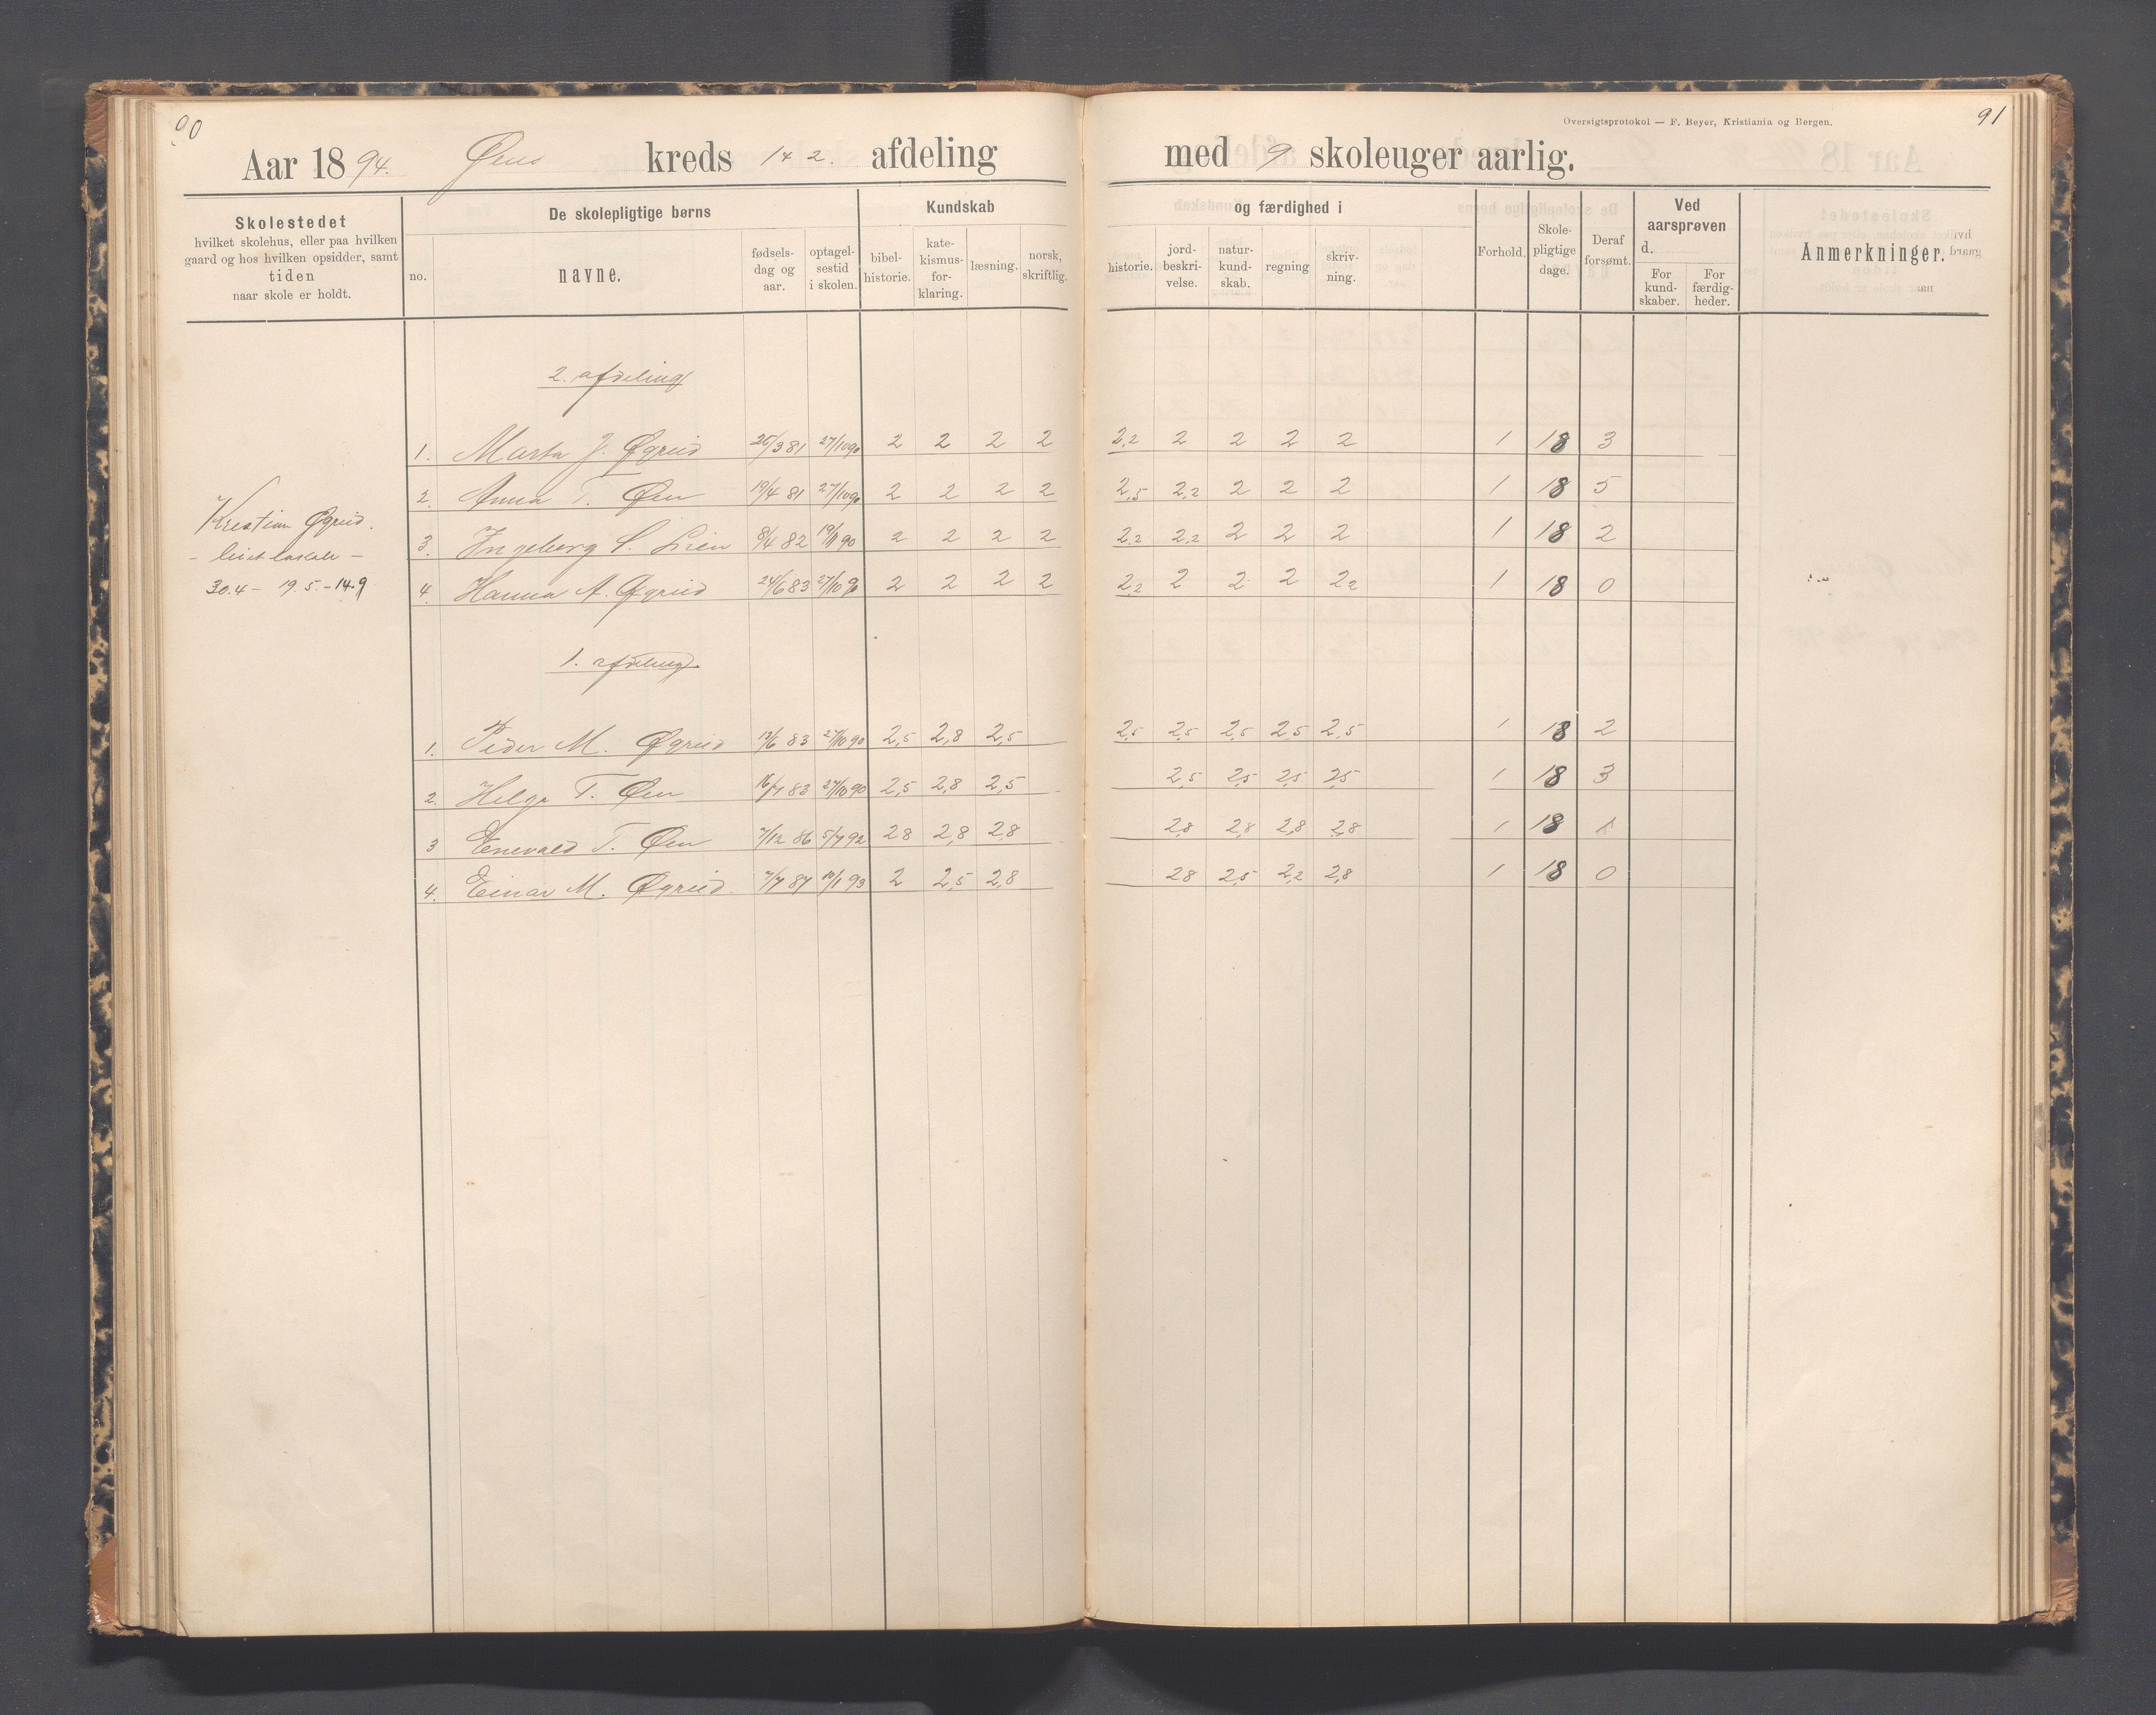 90
91
Oversigtsprotokol — F. Beyer, Kristiania og Bergen.
Aar 1894. Øens kreds 1 & 2. afdeling med 9 skoleuger aarlig.
Skolestedet hvilket skolehus, eller paa hvilken gaard og hos hvilken opsidder, samt tiden naar skole er holdt.
De skolepligtige børns
no. navne. fødselsdag og aar. optagelsestid i skolen.
Kundskab og færdighed i
bibelhistorie. katekismusforklaring. læsning. norsk, skriftlig. historie. jordbeskrivelse. naturkundskab. regning skrivning.
Forhold. Skolepligtige dage. Deraf forsømt.
Ved aarsprøven d.
For kundskaber. For færdigheder.
Anmerkninger.
2. afdeling
1. Marta J. Øgreid 26/3 81 27/10 90 2 2 2 2 2,2 2 2 2 2 1 18 3
2. Anna T. Øen 19/4 81 27/10 90 2 2 2 2 2,5 2,2 2 2 2 1 18 5
3. Ingeborg S. Lien 8/4 82 19/11 90 2 2 2 2 2,2 2,2 2 2 2 1 18 2
4. Hanna A. Øgreid 24/6 83 27/10 90 2 2 2 2 2,2 2 2 2 2,2 1 18 0
Kristian Øgreid.
– leiet lokale –
30.4 – 19.5. – 14.9
1. afdeling
1. Peder M. Øgreid 12/6 83 27/10 90 2,5 2,8 2,5 2,5 2,5 2,5 2,5 2,5 1 18 2
2. Helge T. Øen 16/7 83 27/10 90 2,5 2,8 2,5 2,5 2,5 2,5 2,5 1 18 3
3 Enevald T. Øen 7/12 86 5/7 92 2,8 2,8 2,8 2,8 2,8 2,8 2,8 1 18 1
4. Einar M. Øgreid 7/7 87 10/1 93 2 2,5 2,8 2,8 2,5 2,2 2,8 1 18 0